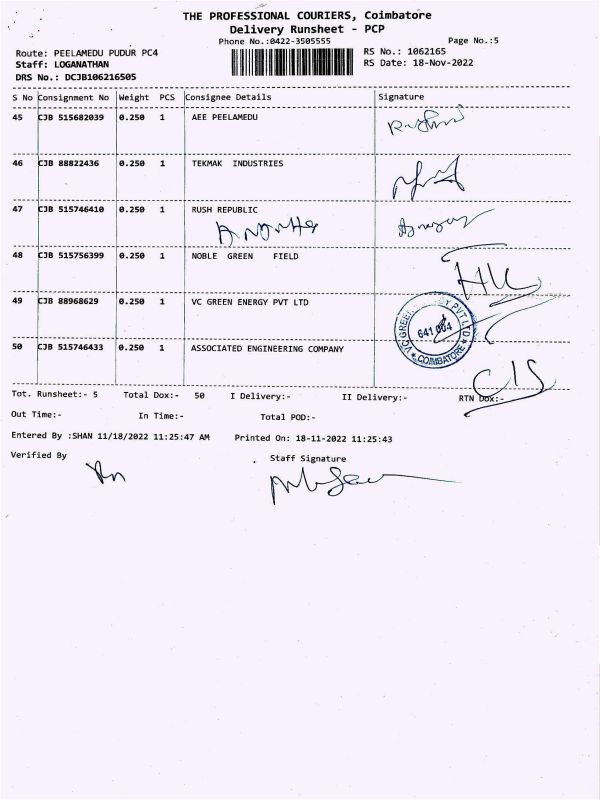 THE PROFESSIONAL COURIERS, Coimbatore
Delivery Runsheet - PCP
Phone No.:0422-3505555 Page No.:5
Route: PEELAMEDU PUDUR PC4 RS No.: 1062165
Staff: LOGANATHAN RS Date: 18-Nov-2022
DRS No.: DCJB106216505
S No Consignment No Weight PCS Consignee Details Signature
45 CJB 515682039 0.250 1 AEE PEELAMEDU
46 CJB 88822436 0.250 1 TEKMAK INDUSTRIES
47 CJB 515746410 0.250 1 RUSH REPUBLIC
48 CJB 515756399 0.250 1 NOBLE GREEN FIELD
49 CJB 88968629 0.250 1 VC GREEN ENERGY PVT LTD
641 004
COIMBATORE
50 CJB 515746433 0.250 1 ASSOCIATED ENGINEERING COMPANY
Tot. Runsheet:- 5 Total Dox:- 50 I Delivery:- II Delivery:- RTN Dox:-
Out Time:- In Time:- Total POD:-
Entered By :SHAN 11/18/2022 11:25:47 AM Printed On: 18-11-2022 11:25:43
Verified By Staff Signature